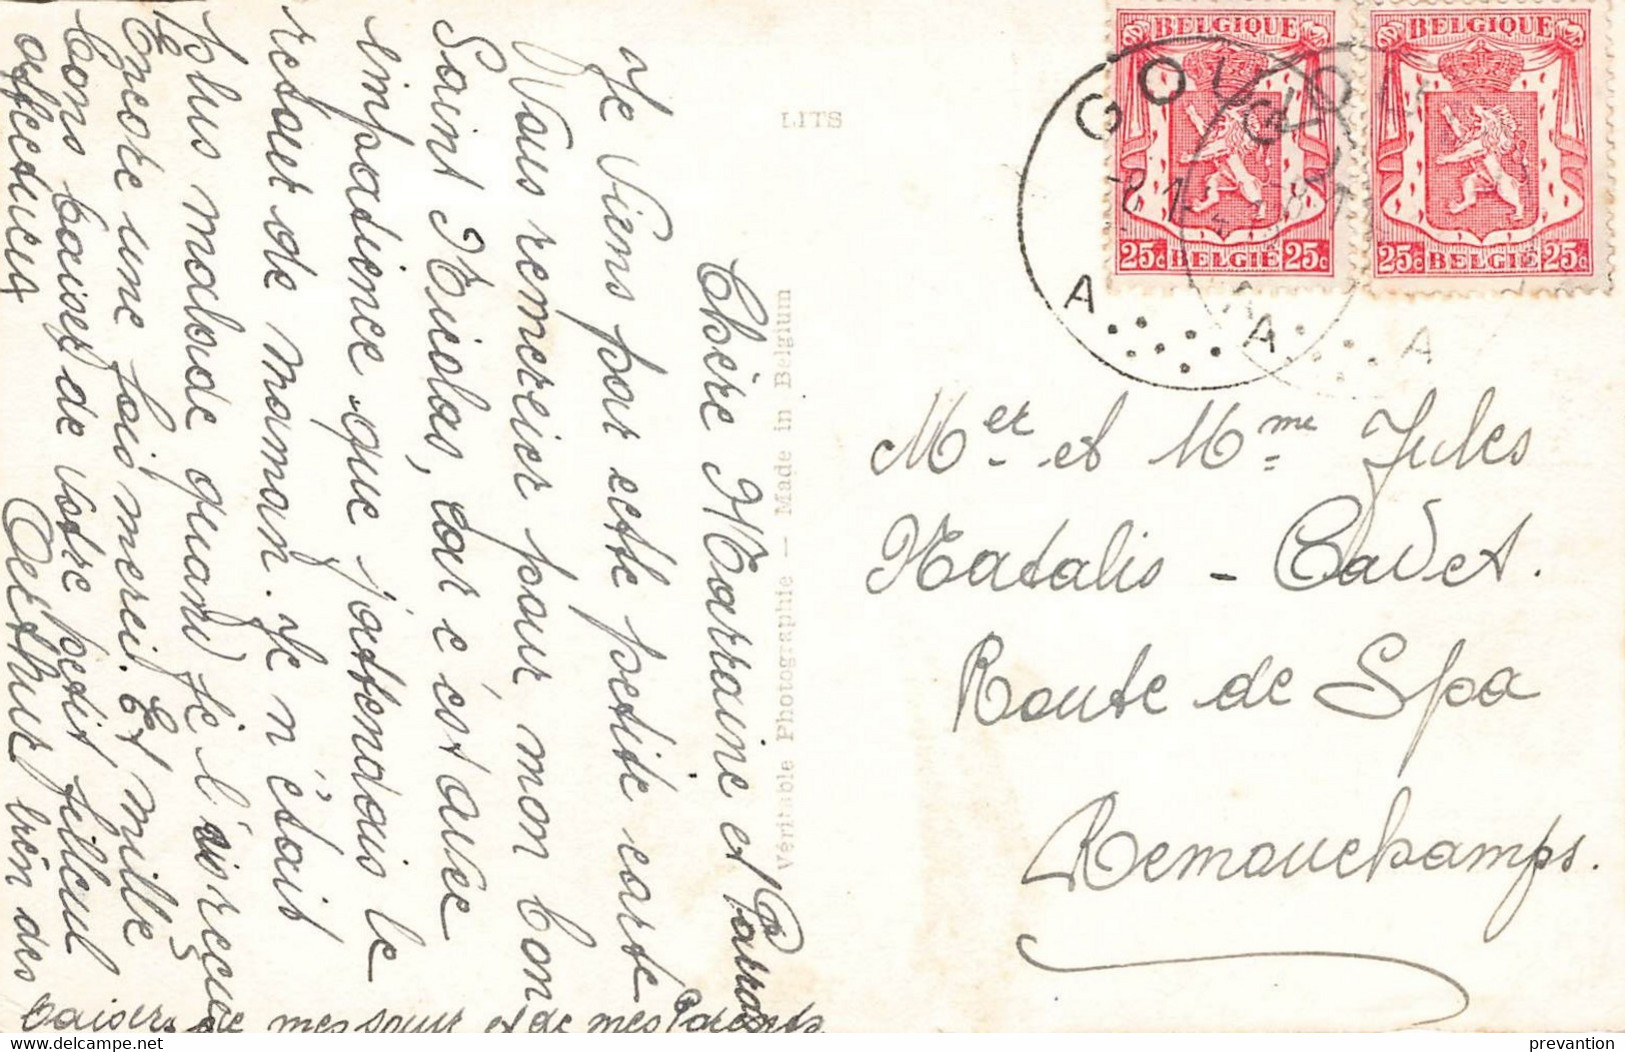 Chère Marraine et Parrain
Je viens par cette petite carte
Vous remercier pour mon bon
Saint Nicolas, car c'est avec
impatience que j'attendais le
retour de maman. Je n'était
plus malade quand je l'ais reçu
Encore une fois merci. Et mille
bons baiser de votre petit filleul
affectueux
Arthur bien des
baisers de mes sœur et de mes Parents
LITS
Véritable Photographie — Made in Belgium
BELGIQUE
25c BELGIË 25c
BELGIQUE
25c BELGIË 25c
GOUV
A A
A
Mer et Mme Jules
Natalis - Cavet.
Route de Spa
Remouchamps.
delcampe.net
prevantion